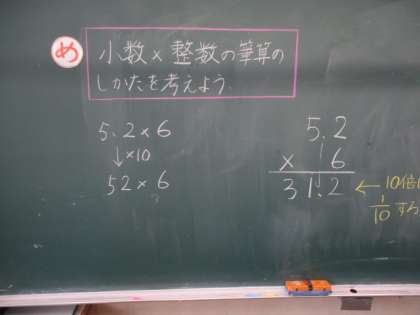 め
小数×整数の筆算の
しかたを考えよう。
5.2×6
↓×10
52×6
5.2
× 6
31.2
← 10倍
1/10 する